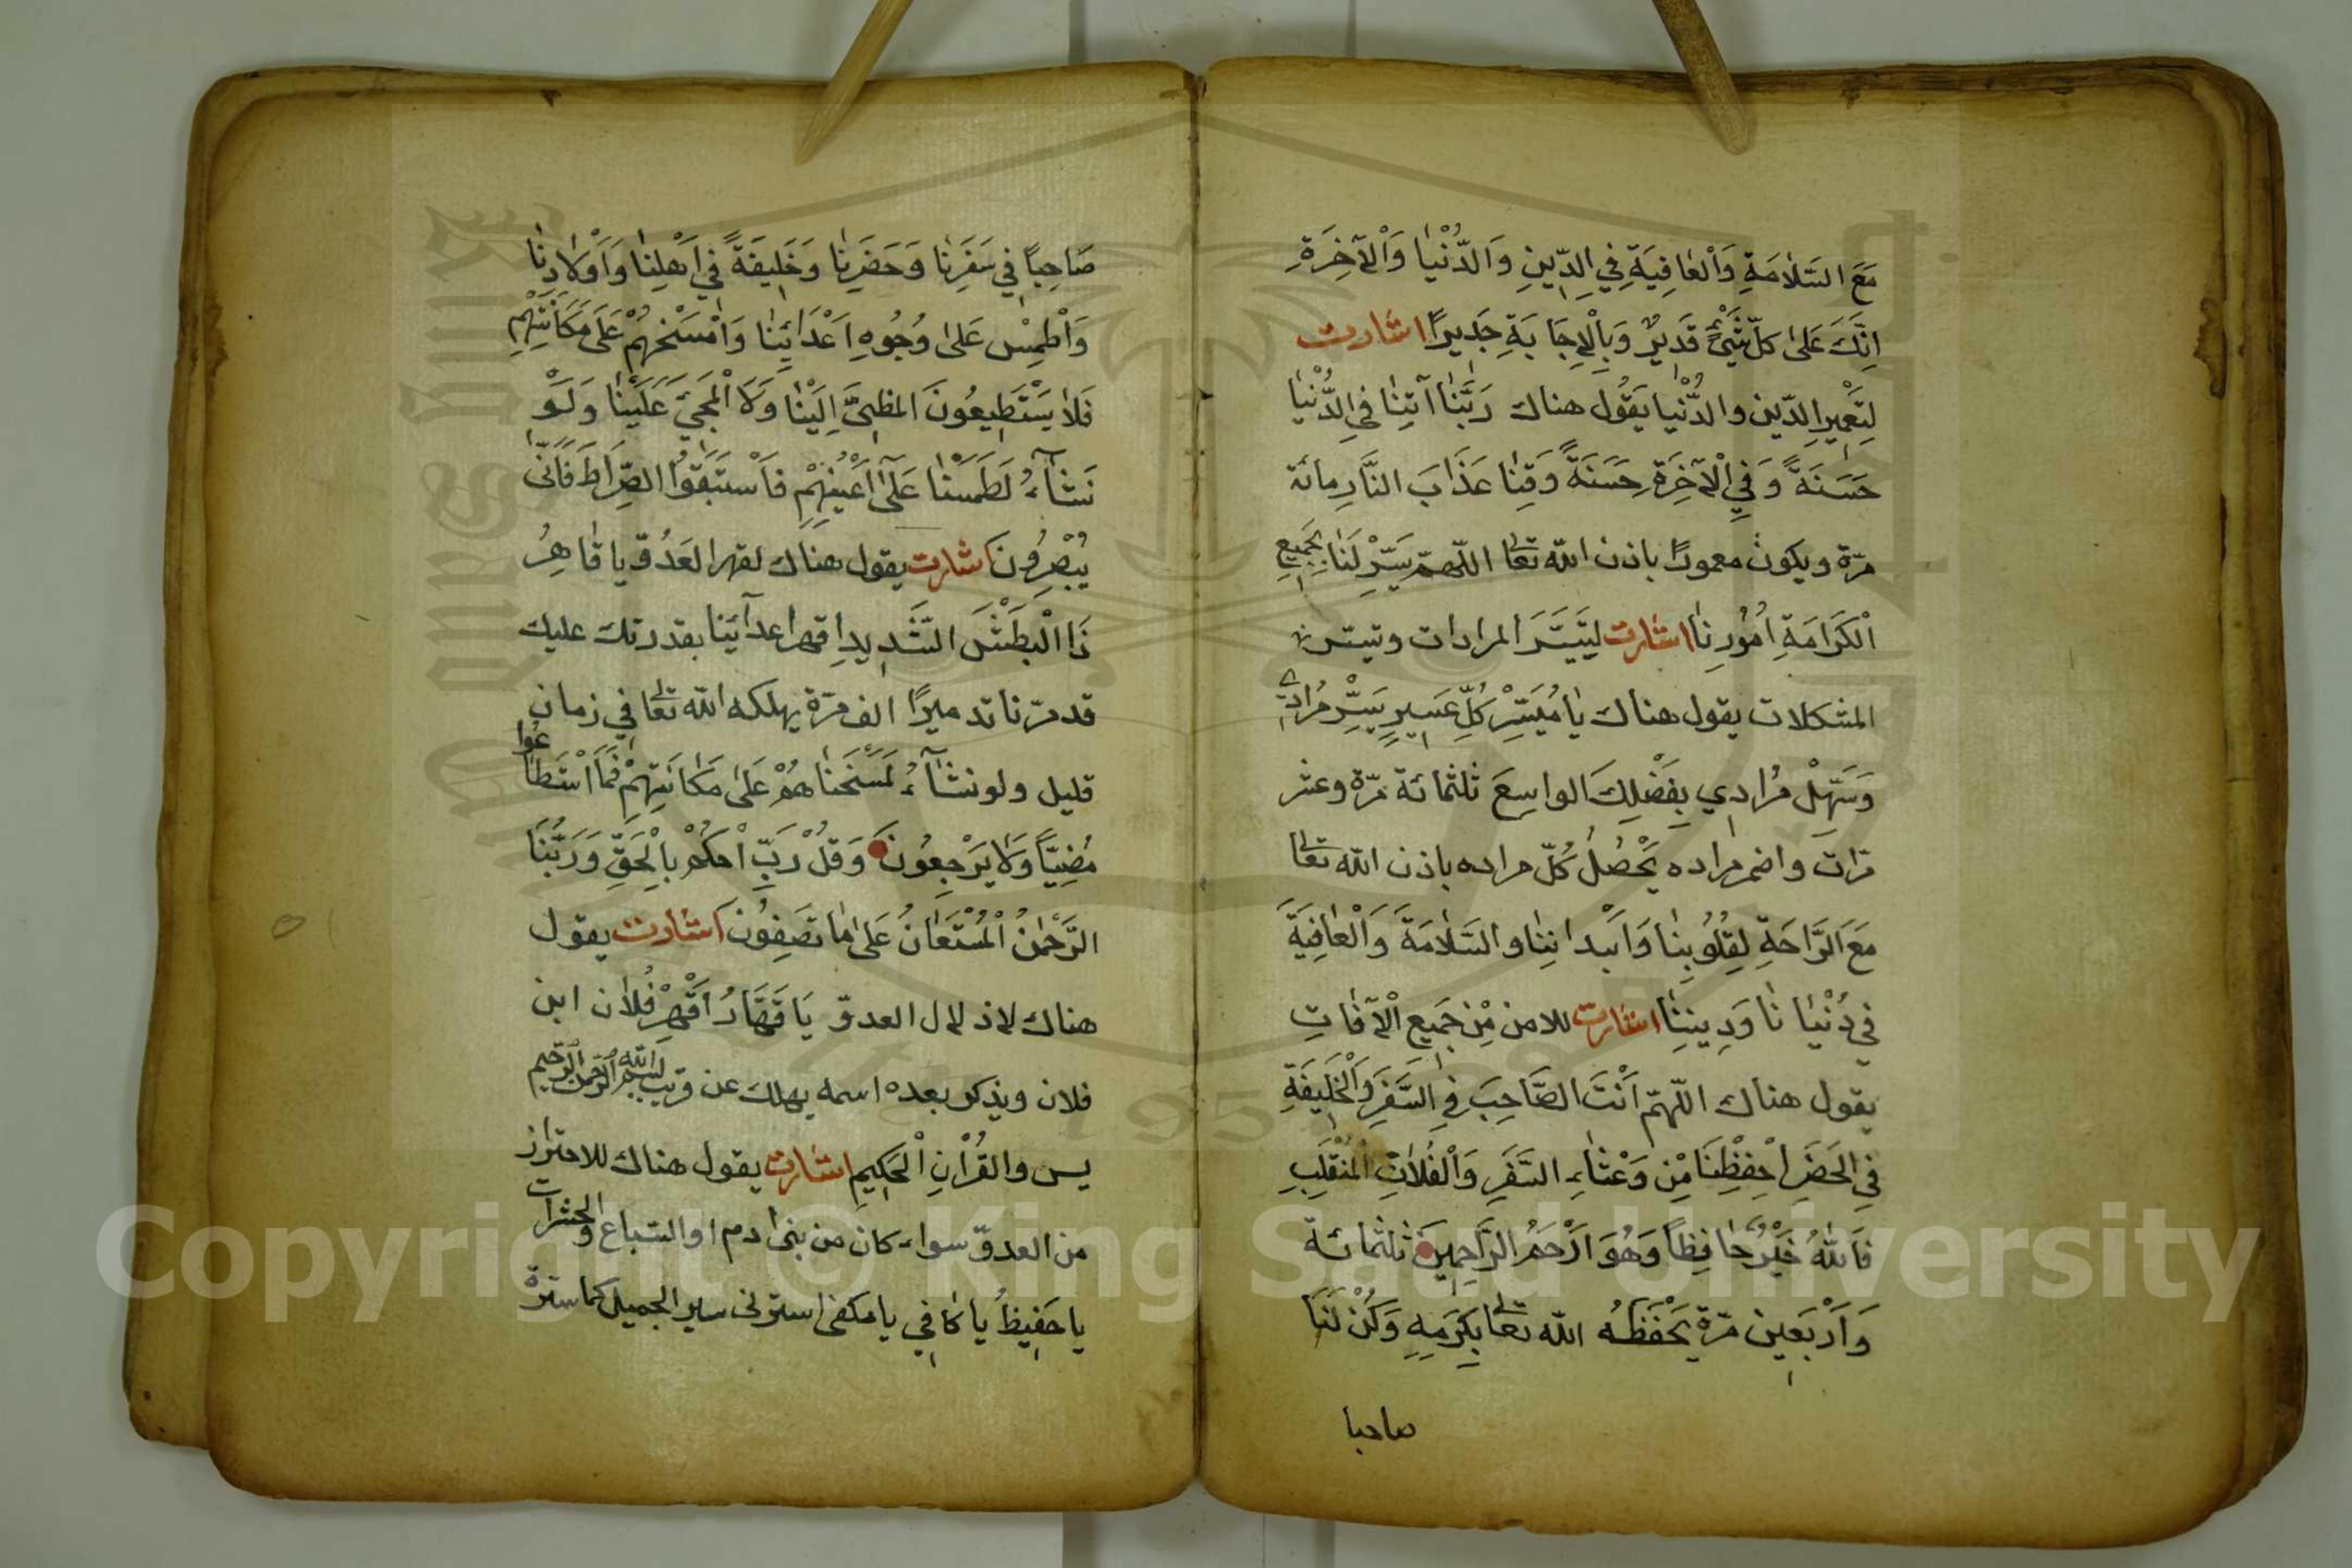 مَعَ السَّلَامَةِ وَالْعَافِيَةِ فِي الدِّينِ وَالدُّنْيَا وَالْآخِرَةِ
اِنَّكَ عَلَى كُلِّ شَيْءٍ قَدِيرٌ وَبِالْاِجَابَةِ جَدِيرًا اشارت
لِتَعْمِيرِ الدّين والدُّنْيا يَقُول هناك رَبَّنَا آتِنَا فِي الدُّنْيَا
حَسَنَةً وَفِي الْآخِرَةِ حَسَنَةً وَقِنَا عَذَابَ النَّارِ مائة
مرّة ويكون معمورًا باذن الله تعا اللّهمّ يَسِّرْ لَنَا بِجَمِيعِ
الْكَرَامَةِ اُمُوْرِنَا اشارت ليَتَيَسَّرَ المرادات وتيسّر
المشكلات يقول هناك يَا مُيَسِّرْ كُلِّ عَسِيرٍ يَسِّرْ مُرَادِي
وَسَهِّلْ مُرَادِي بِفَضْلِكَ الواسِعَ ثلثمائة مرّة وعشر
مرّات واضمر مراده يَحْصُلُ كُلّ مراده باذن الله تعا
مَعَ الرَّاحَةِ لِقُلُوبِنَا وَاَبْدَانِنَا والسَّلَامَةَ وَالْعَافِيَةَ
فِي دُنْيَانَا وَدِينِنَا اشارت للامن مِّنْ جَمِيعِ الْآفَاتِ
يقول هناك اللّهمّ اَنْتَ الصَّاحِبَ فِي السَّفَرَ وَالْخَلِيفَةِ
فِي الْحَضَرِ احْفِظْنَا مِّن وَعْثَاءِ السَّفَرِ وَالْفَلَاتِ الْمُنْقَلِبِ
فَاللّٰهُ خَيْرٌ حَافِظًا وَهُوَ اَرْحَمُ الرَّاحِمِينَ ثلثمائة
وَاَرْبَعِين مرّة يَحْفَظُه الله تعا بِكَرَمِهِ وَكُنْ لَنَا
صاحبا
صَاحِبًا فِي سَفَرِنَا وَحَضَرِنَا وَخَلِيفَةً فِي اَهْلِنَا وَاَوْلَادِنَا
وَاطْمِسْ عَلَى وُجُوهِ اَعْدَائِنَا وَامْسَخْهُمْ عَلَى مَكَانَتِهِمْ
فَلَا يَسْتَطِيعُونَ المضِيَّ اِلَيْنَا وَلَا الْمَجِيَ عَلَيْنَا وَلَوْ
نَشَآءُ لَطَمَسْنَا عَلَى اَعْيُنِهِمْ فَاسْتَبَقُوا الصِّرَاطَ فَاَنَّى
يُبْصِرُونَ اشارت يقول هناك لقهر العَدُوّ يا قَاهِرُ
ذَا الْبَطْشِ الشَّدِيدِ اِقهر اعدآئنا بقدرتك عليك
قدمرّنا تدميرًا الف مرّة يهلكه الله تعا في زمان
قليل ولو نشآءُ لَمَسَخْنَاهُمْ عَلَى مَكَانَتِهِمْ فَمَا اسْتَطَاعُوا
مُضِيًّا وَلَا يَرْجِعُونَ وَقُلْ رَبِّ احْكُمْ بِالْحَقِّ وَرَبُّنَا
الرَّحْمٰنُ الْمُسْتَعَانُ عَلَى مَا تَصِفُونَ اشارت يقول
هناك لاذلال العدوّ يَا قَهَّارُ اَقْهِرْ فُلَان ابن
فلان ويذكر بعده اسمه يهلك عن قريب بسم الله الرّحمن الرّحيم
يس والقُرْاٰنِ الْحَكِيمِ اشارت يقول هناك للاحتراز
من العدوّ سواء كان من بنى ادم او السّباع والحشرات
يا حَفِيظُ يَا كَافِي يا مكفى استرنى سير الجميل كما سترة
Copyright © King Saud University